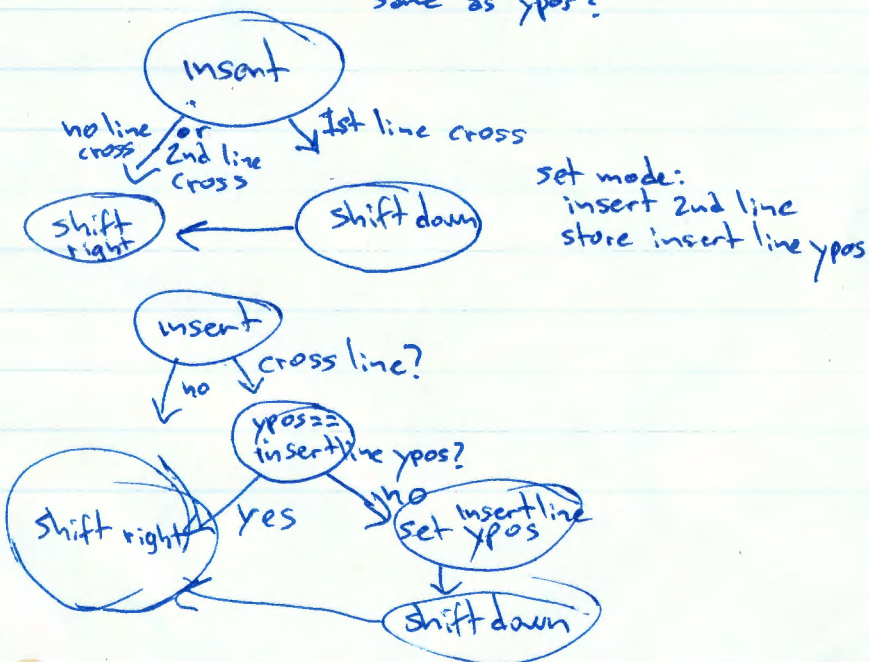 same as ypos?
insert
no line or
cross 2nd line
cross
1st line cross
shift
right
shift down
set mode:
insert 2nd line
store insert line ypos
insert
no
cross line?
ypos==
insertline ypos?
yes
no
shift right
set insertline
ypos
shift down